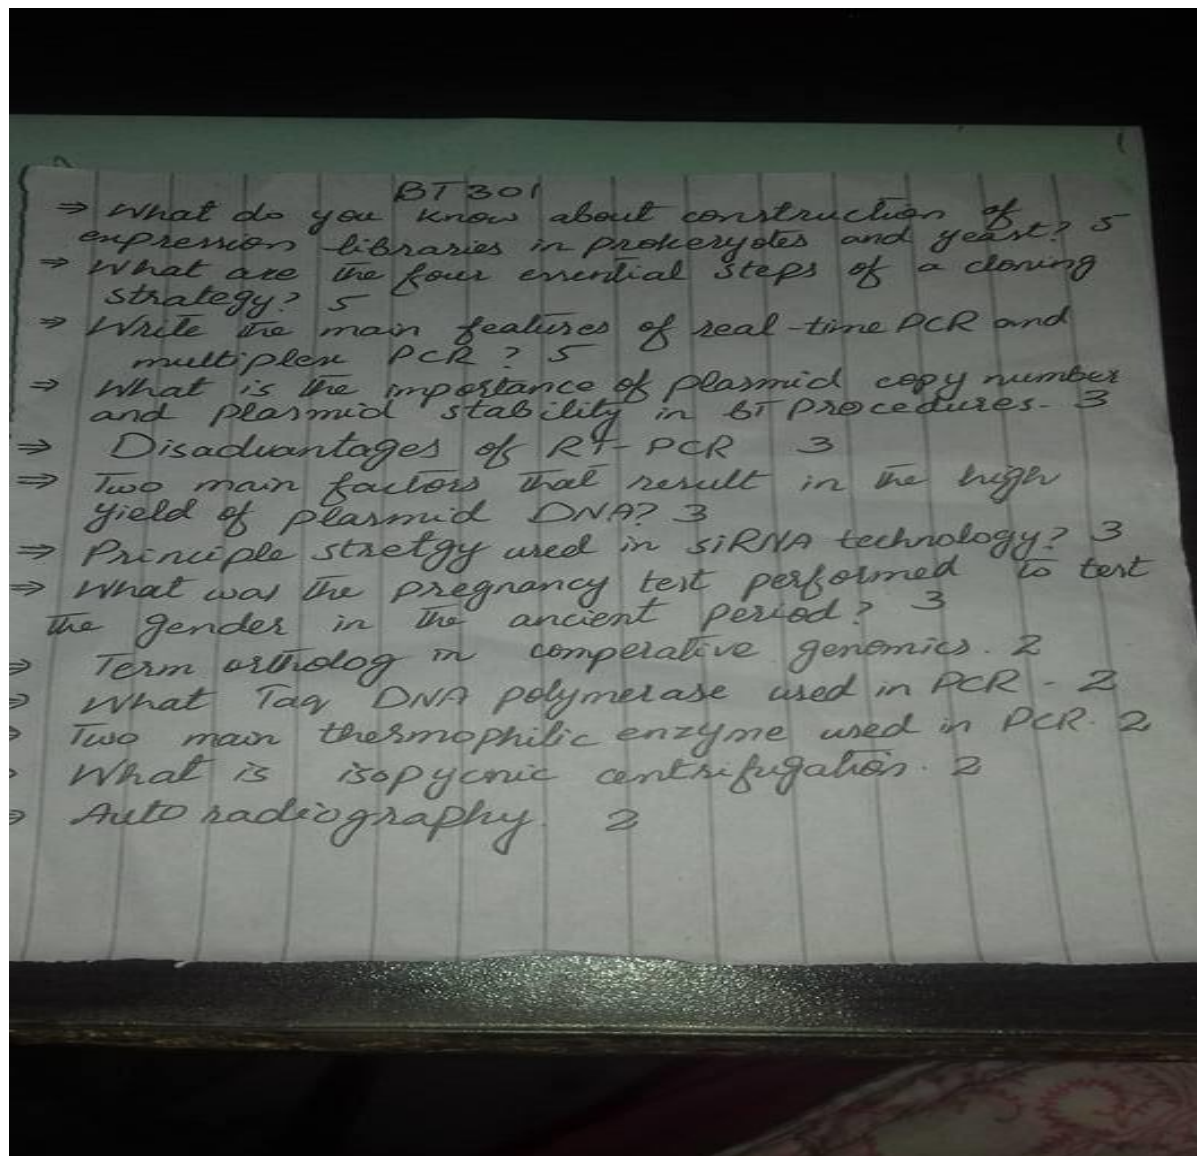 BT301
⇒ What do you know about construction of
expression libraries in prokeryotes and yeast? 5
⇒ What are the four essential steps of a cloning
strategy? 5
⇒ Write the main features of real-time PCR and
multiplex PCR ? 5
⇒ What is the importance of plasmid copy number
and plasmid stability in BT procedures. 3
⇒ Disadvantages of RT-PCR 3
⇒ Two main factors that result in the high
yield of plasmid DNA? 3
⇒ Principle stretgy used in siRNA technology? 3
⇒ What was the pregnancy test performed to test
the gender in the ancient period? 3
⇒ Term ortholog in comperative genomics. 2
⇒ What Taq DNA polymerase used in PCR - 2
⇒ Two main thermophilic enzyme used in PCR. 2
⇒ What is isopycnic centrifugation. 2
⇒ Auto radiography. 2